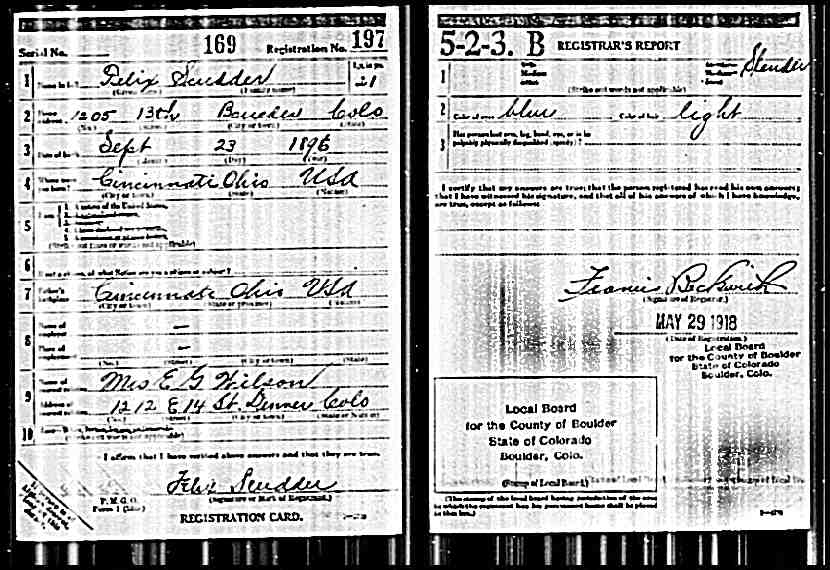 Serial No. 169 Registration No. 197
1 Felix Scudder 21
2 1205 13th Boulder Colo
(No.) (City or town) (State)
3 Date of birth Sept 23 1896
(Month) (Day) (Year)
4 Where were you born? Cincinnati Ohio USA
(City or town) (State) (Nation)
5
6 If not a citizen, of what Nation are you a citizen or subject?
7 Father's birthplace Cincinnati Ohio USA
(City or town) (State or province) (Nation)
8 Name of employer —
Place of employment —
(No.) (Street) (City or town) (State)
9 Name of nearest relative Mrs E G Wilson
Address of nearest relative 1212 E 14 St. Denver Colo
(No.) (Street) (City or town) (State or Nation)
10
I affirm that I have verified above answers and that they are true.
Felix Scudder
(Signature or Mark of Registrant)
P. M. G. O.
Form 1
REGISTRATION CARD.
5-2-3. B REGISTRAR'S REPORT
1 Slender
(Strike out words not applicable)
2 Color of eyes blue Color of hair light
3 Has person lost arm, leg, hand, eye, or is he
palpably physically disqualified (specify)?
I certify that my answers are true; that the person registered has read his own answers;
that I have witnessed his signature, and that all of his answers of which I have knowledge,
are true, except as follows:
Francis Beckwith
(Signature of Registrar)
MAY 29 1918
(Date of Registration)
Local Board
for the County of Boulder
State of Colorado
Boulder, Colo.
Local Board
for the County of Boulder
State of Colorado
Boulder, Colo.
(Stamp of Local Board)
(The stamp of the local board having jurisdiction of the area
in which the registrant has his permanent home shall be placed
in this box.)